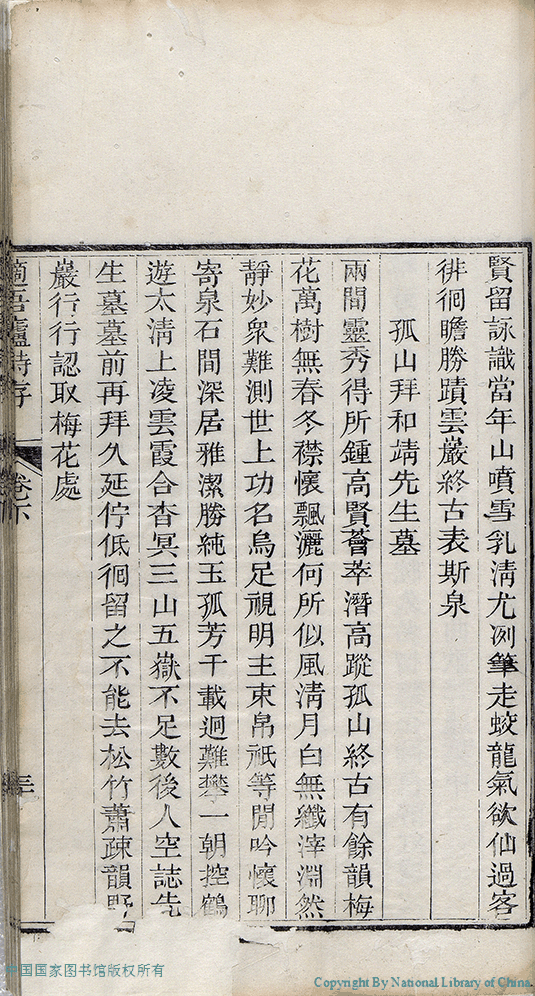 賢留詠識當年山噴雪乳淸尤冽筆走蛟龍氣欲仙過客
徘徊瞻勝蹟雲巖終古表斯泉
孤山拜和靖先生墓
兩間靈秀得所鍾高賢薈萃潛高蹤孤山終古有餘韻梅
花萬樹無春冬襟懷飄灑何所似風淸月白無纖滓淵然
靜妙衆難測世上功名烏足視明主束帛祇等閒吟懷聊
寄泉石間深居雅潔勝純玉孤芳千載迥難攀一朝控鶴
遊太淸上凌雲霞合杳冥三山五嶽不足數後人空誌先
生墓墓前再拜久延佇低徊留之不能去松竹蕭疎韻野
巖行行認取梅花處
適吾廬詩存
卷下
三
中国国家图书馆版权所有
Copyright By National Library of China